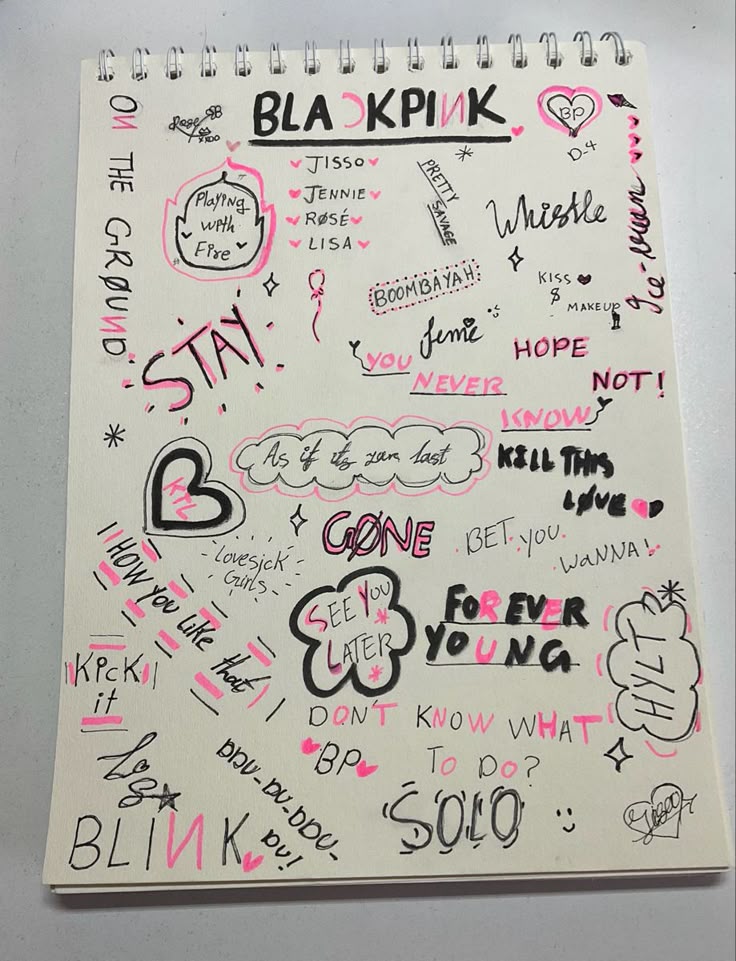 BLACKPINK
BP
D-4
ON THE GRØUND
JISSO
JENNIE
RØSÉ
LISA
PRETTY
SAVAGE
Playing
with
Fire
Whistle
Ice-cream
BOOMBAYAH
KISS
&
MAKEUP
STAY
YOU
NEVER
KNOW
HOPE
NOT!
As if its your last
KILL THIS
LØVE
KTL
GØNE
BET YOU
WANNA!
Lovesick
Girls
HOW YOU Like that
SEE YOU
LATER
FOREVER
YOUNG
HYLT
KicK
it
DON'T KNOW WHAT
TO DO?
BP
DDU-DU-DDU-
DU!
SOLO
BLINK